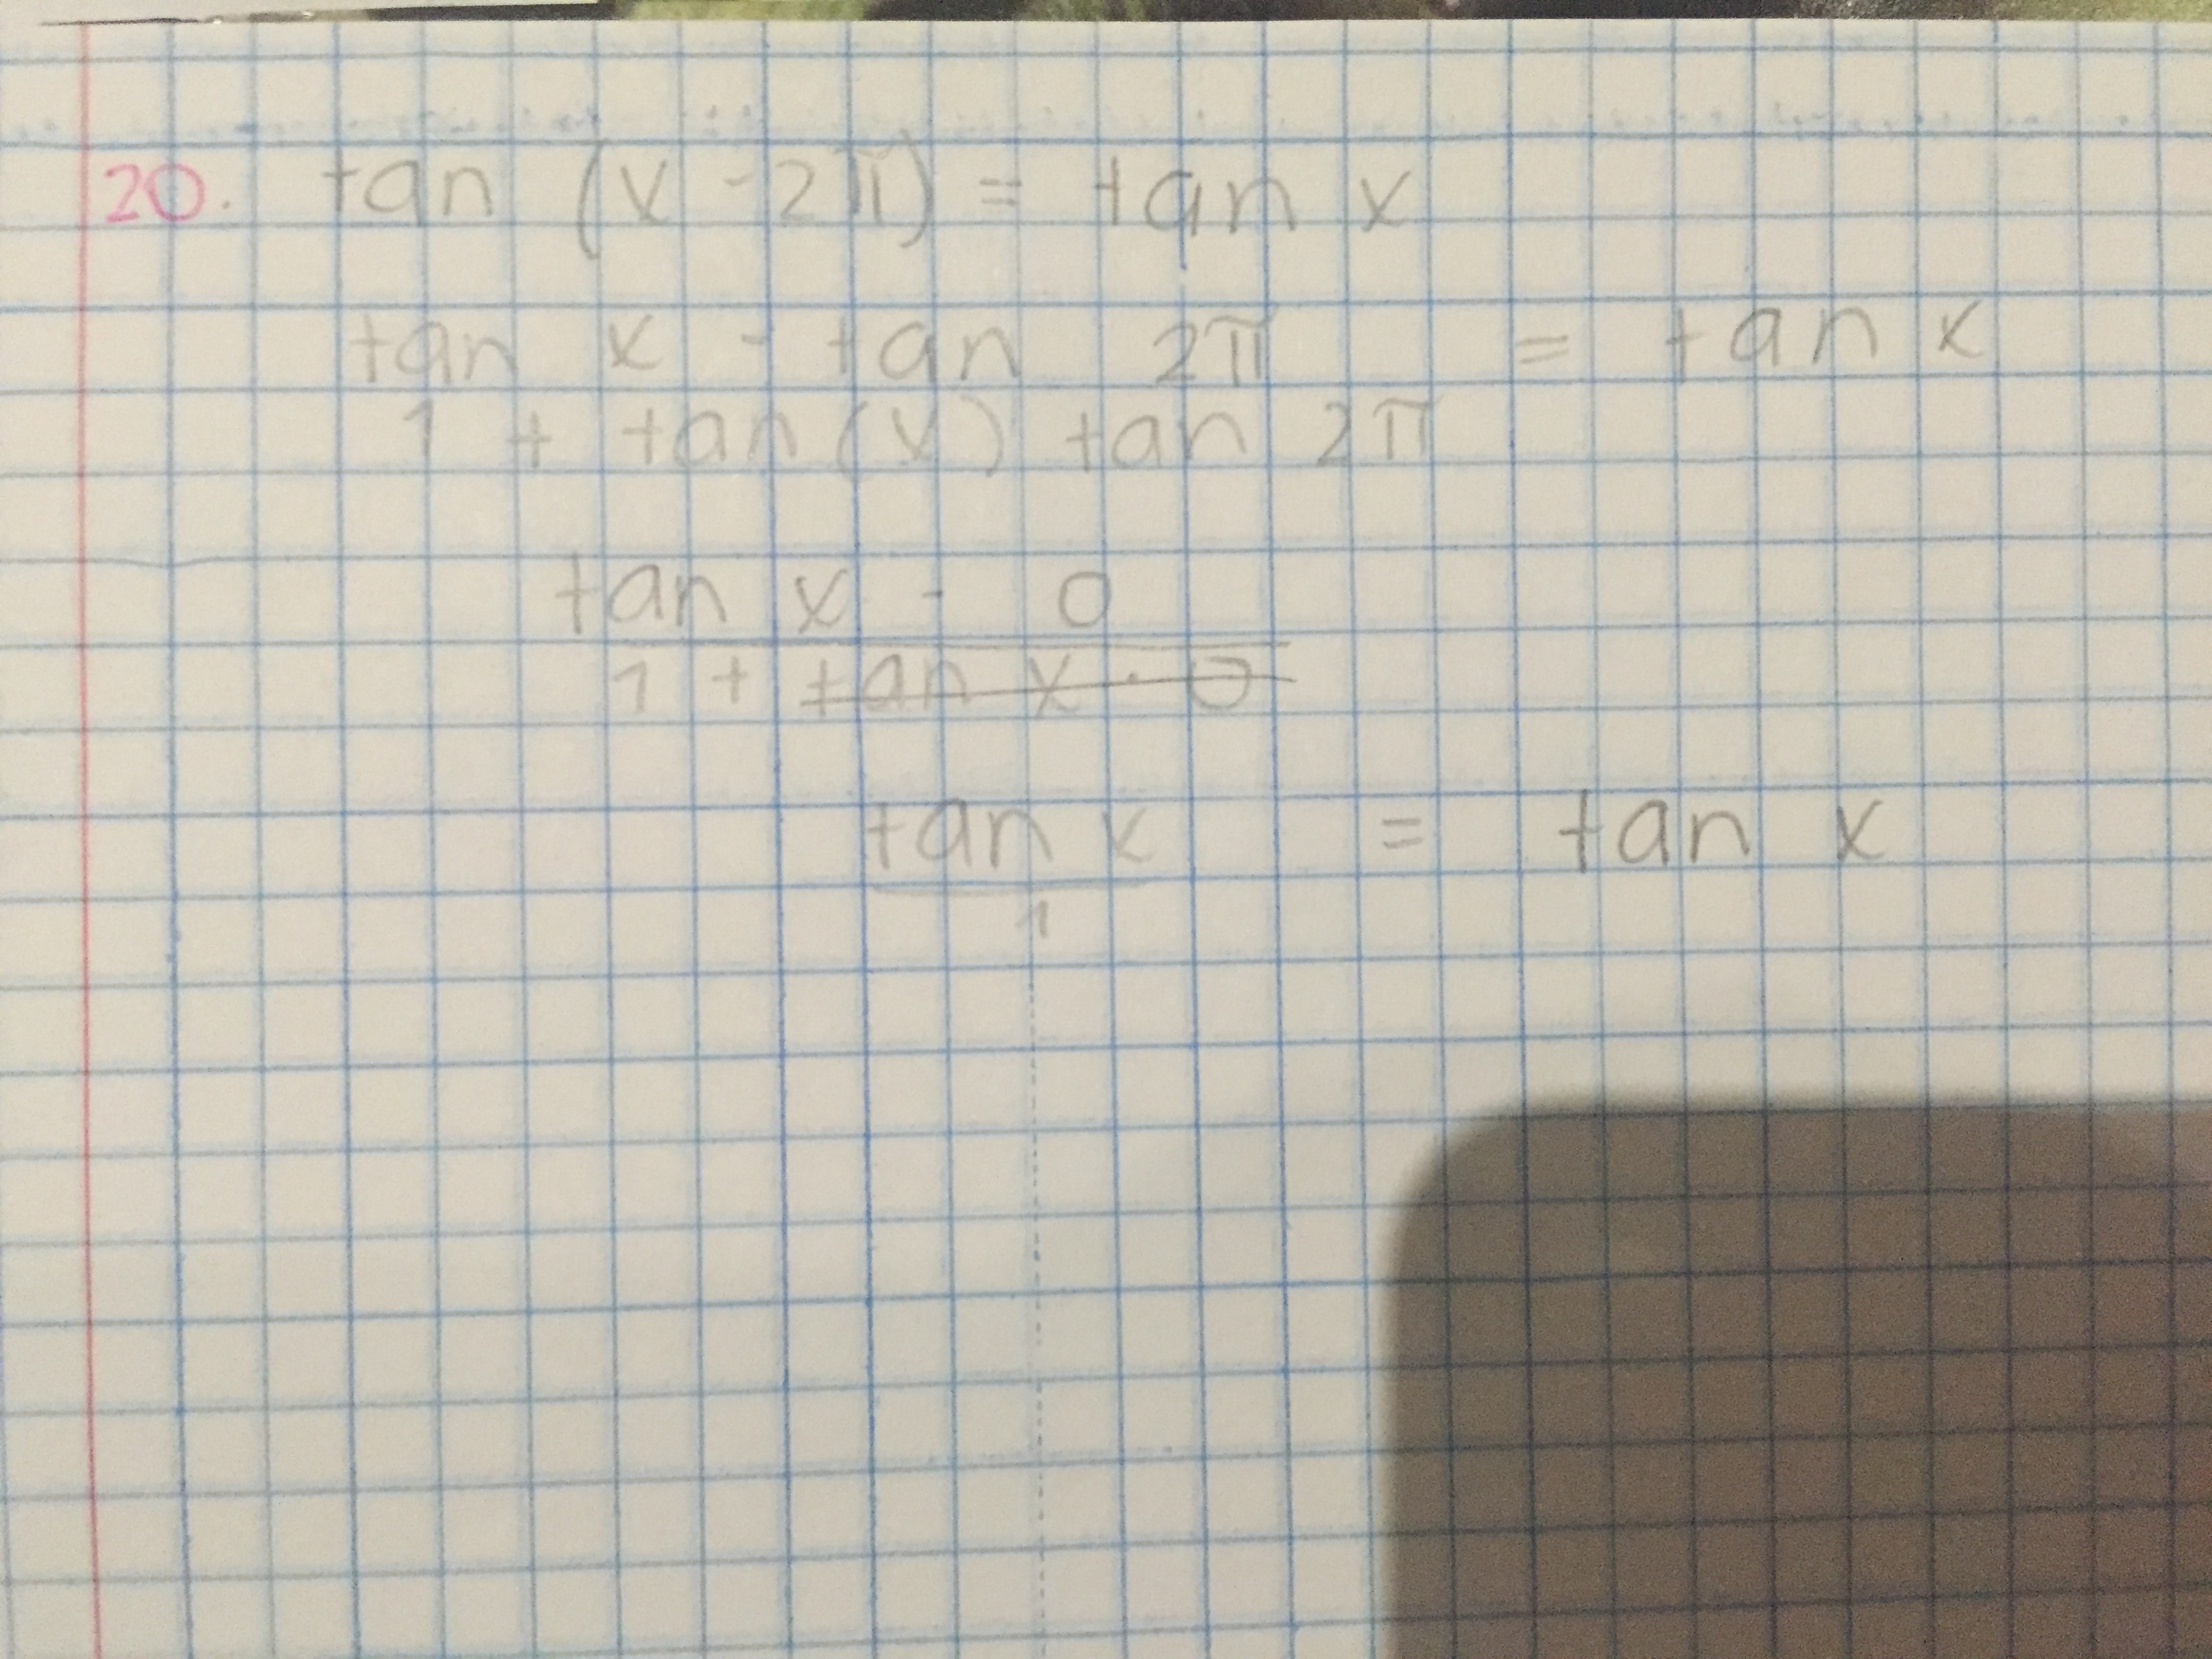 20. tan (x - 2π) = tan x
tan x - tan 2π = tan x
1 + tan(x) tan 2π
tan x - 0
1 + tan x · 0
tan x = tan x
1